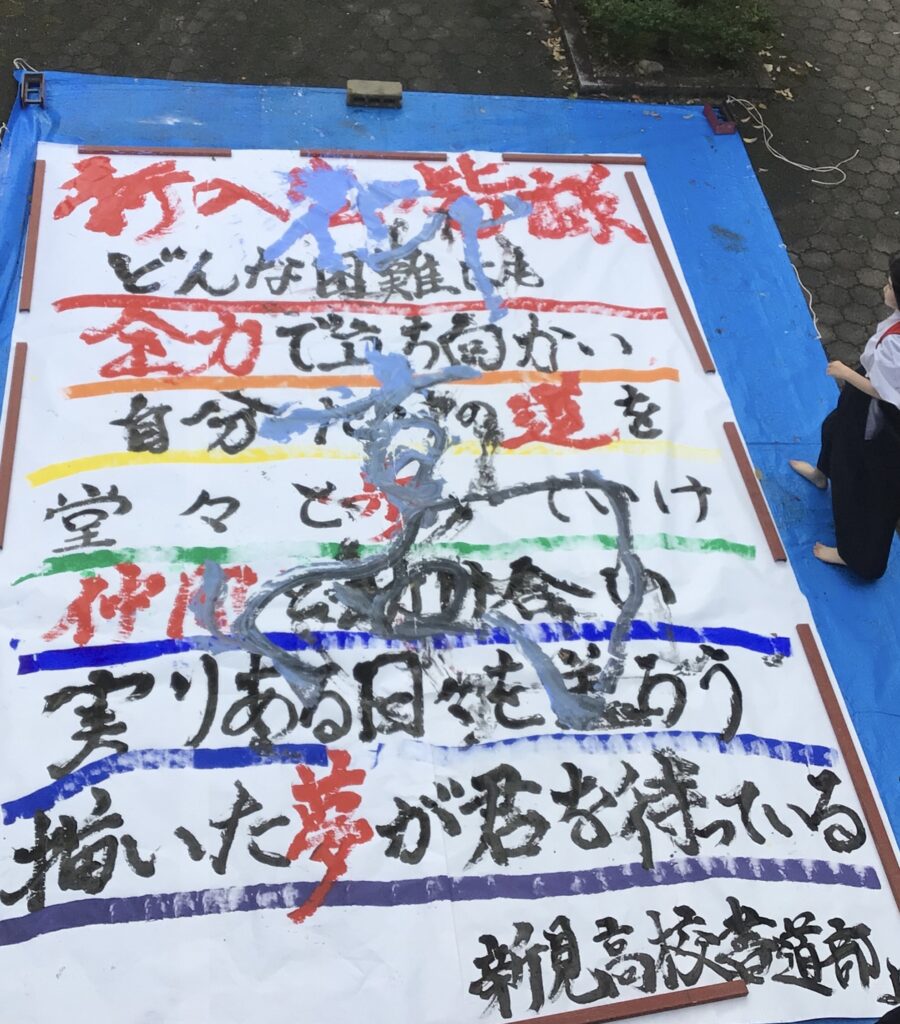 新入 皆様
どんな困難にも
全力で立ち向かい
自分 の道を
堂々と いけ
仲間と 合い
実りある日々を送ろう
描いた夢が君を待っている
新見高校書道部